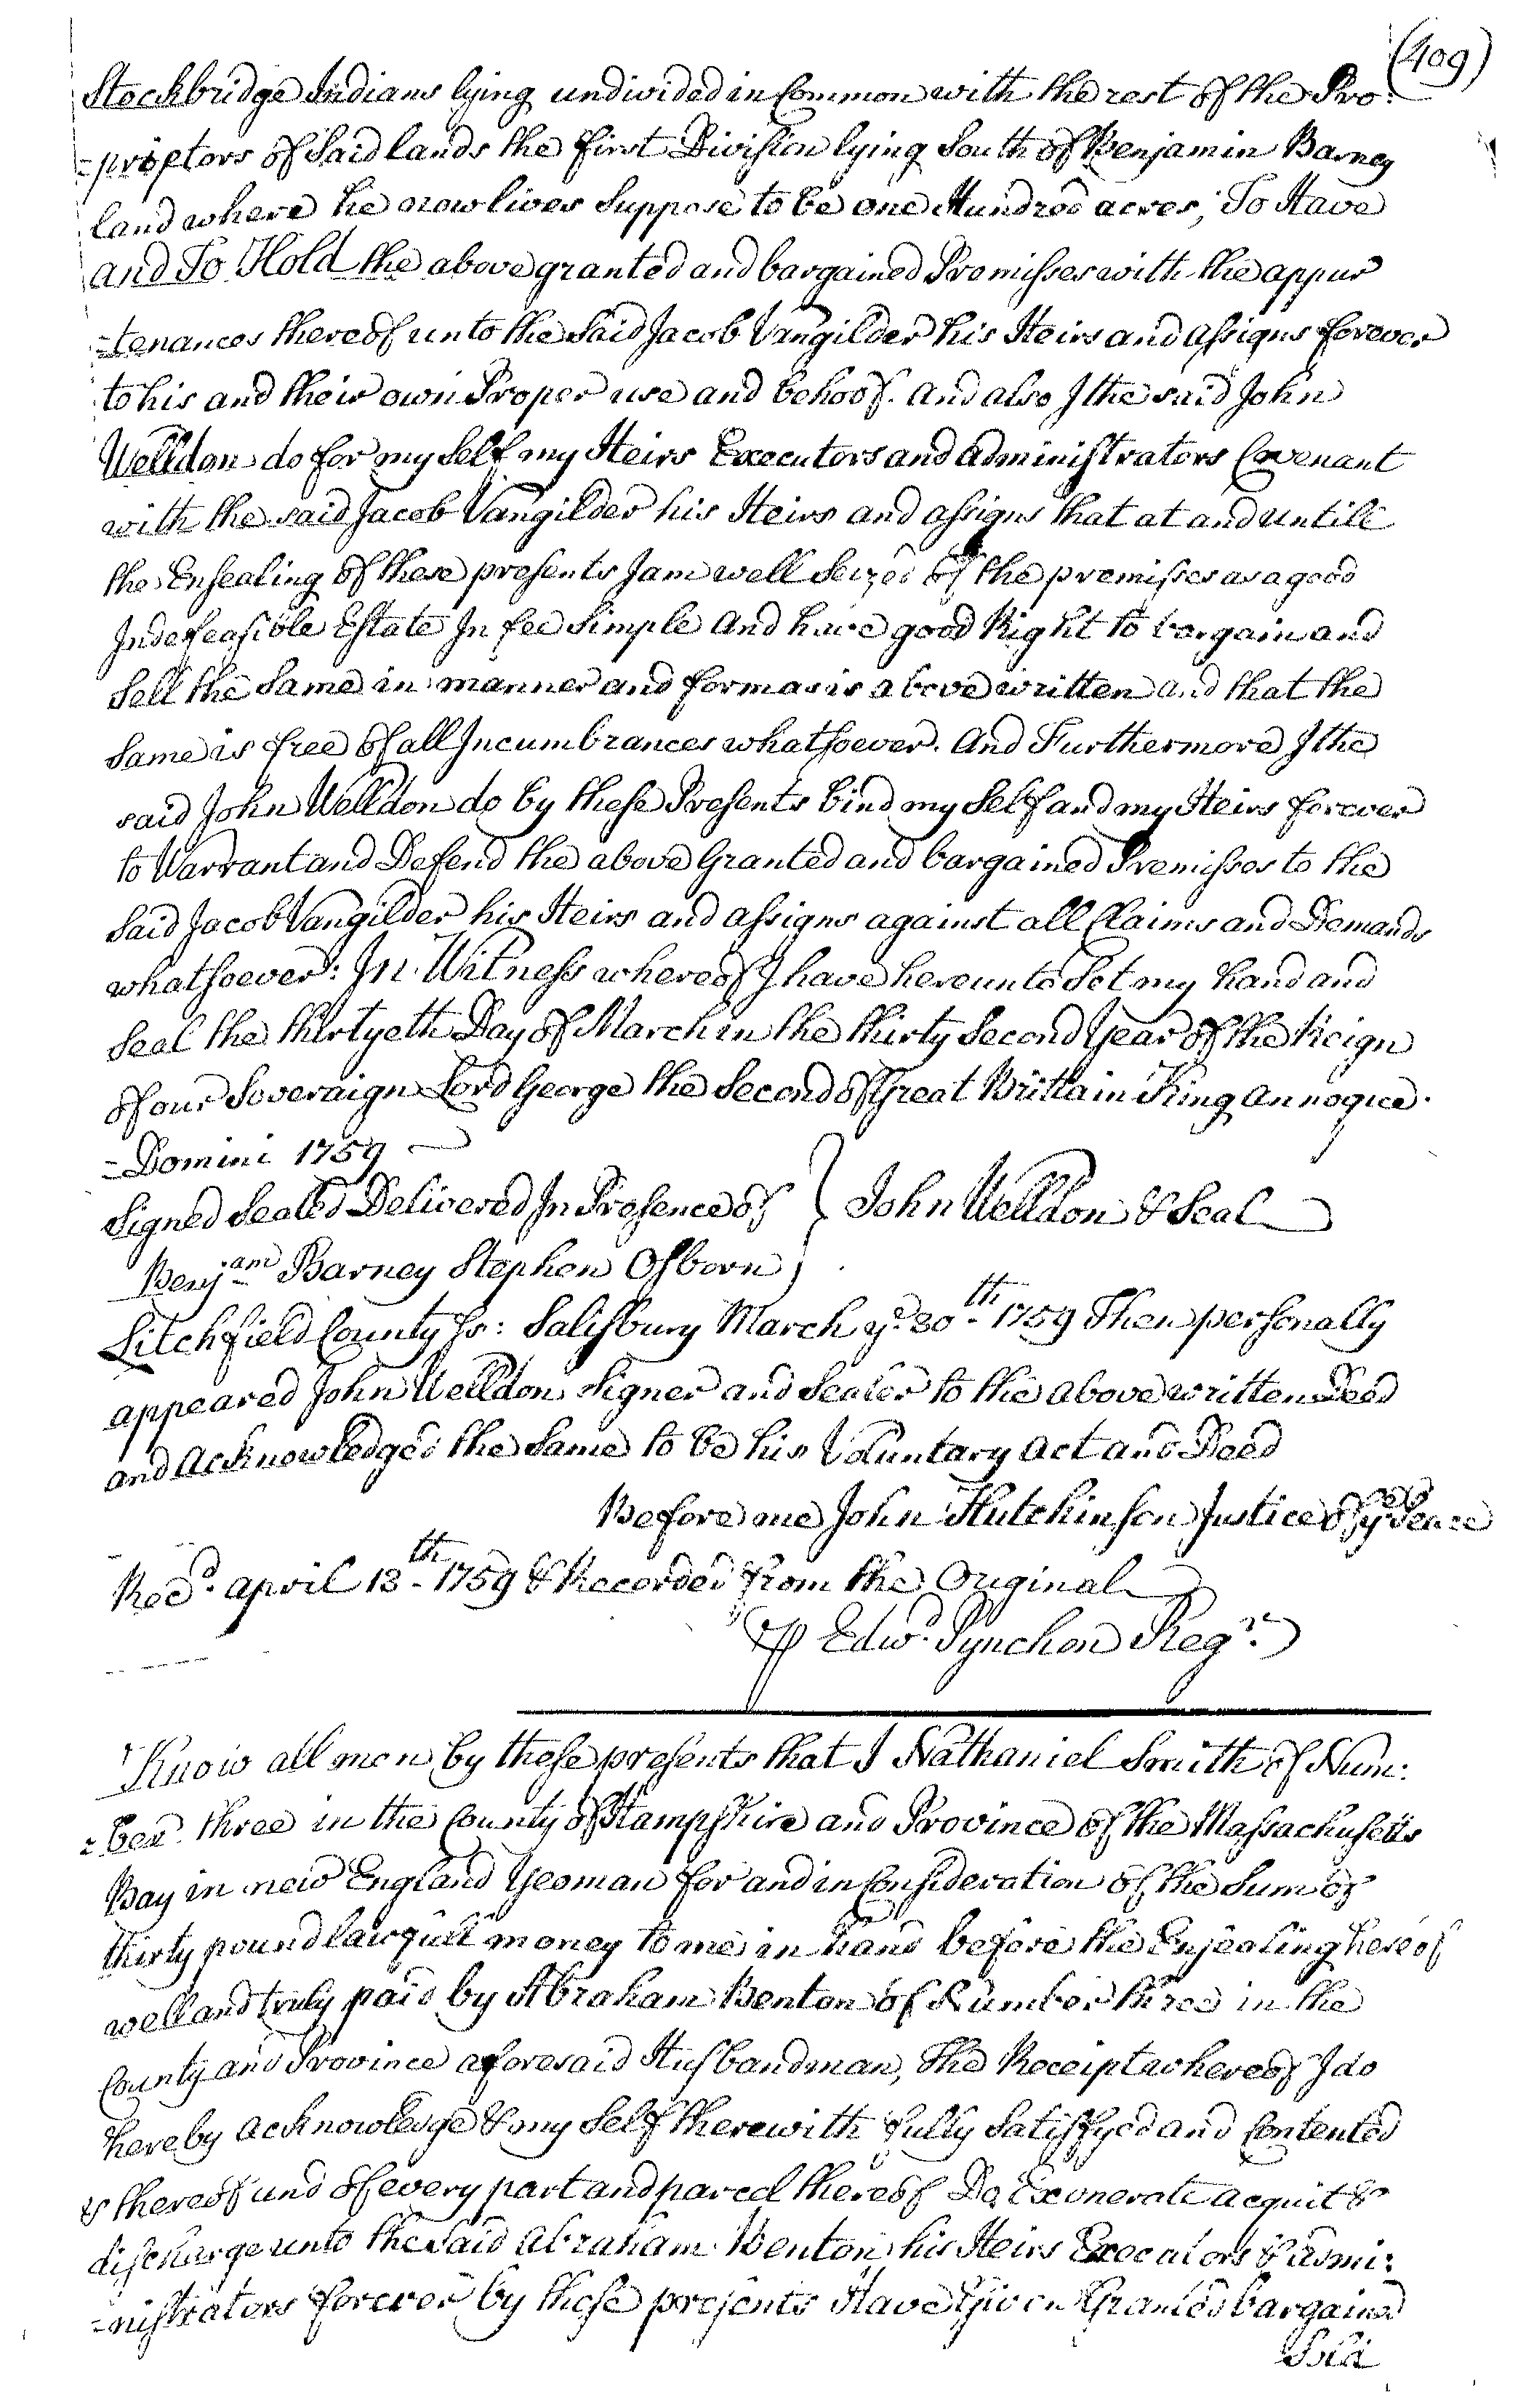 (409)
Stockbridge Indians lying undivided in Common with the rest of the Pro:
-prietors of Said lands the first Division lying South of Benjamin Barney
land where he now lives Suppose to be one Hundred acres, To Have
and To Hold the above granted and bargained Premisses with the appur
-tenances thereof unto the Said Jacob Vangilder his Heirs and assigns forever
to his and their own Proper use and behoof. And also I the said John
Welldon do for my Self my Heirs Executors and administrators Covenant
with the said Jacob Vangilder his Heirs and assigns that at and untill
the Ensealing of these presents I am well Seized of the premisses as a good
Indefeasible Estate In fee Simple And have good Right to bargain and
Sell the Same in manner and form as is above written and that the
Same is free of all Incumbrances whatsoever. And Furthermore I the
said John Welldon do by these Presents bind my Self and my Heirs forever
to Warrant and Defend the above Granted and bargained Premisses to the
Said Jacob Vangilder his Heirs and assigns against all Claims and Demands
whatsoever: In Witness whereof I have hereunto Set my hand and
Seal the thirtyeth Day of March in the thirty Second Year of the Reign
of our Soveraign Lord George the Second of Great Brittain King annoque.
-Domini 1759
Signed Sealed Delivered In Presence of } John Welldon & Seal
Benjam Barney Stephen Osborn
Litchfield County Ss: Salisbury March ye 30th 1759 Then personally
appeared John Welldon Signer and Sealer to the above written Deed
and acknowledged the Same to be his Voluntary act and Deed
Before me John Hutchinson Justice of ye Peace
Recd. april 13th 1759 & Recorded from the Original
℔ Edwd. Pynchon Regr.
Know all men by these presents that I Nathaniel Smith of Num:
-ber three in the County of Hampshire and Province of the Massachusetts
Bay in new England Yeoman for and in Consideration of the Sum of
thirty pound lawfull money to me in hand before the Ensealing hereof
well and truly paid by Abraham Benton of Number three in the
County and Province aforesaid Husbandman, The Receipt whereof I do
hereby acknowledge & my Self therewith fully Satisfyed and Contented
& thereof and of every part and parcel thereof Do Exonerate acquit &
discharge unto the Said Abraham Benton his Heirs Executors & admi:
-nistrators forever by these presents Have Given Granted bargained
Sold